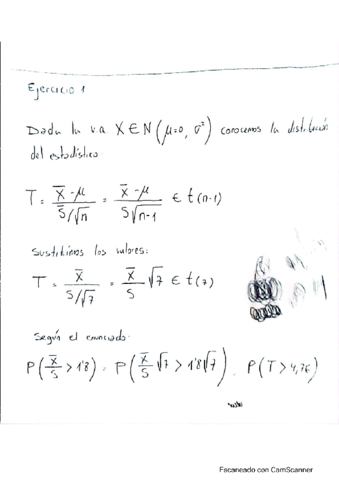 Ejercicio 1
Dada la v.a. X ∈ N(μ=0, σ²) conocemos la distribución
del estadístico
T = (x̄ - μ)/(S/√n) = (x̄ - μ)/(S√n-1) ∈ t(n-1)
Sustituimos los valores:
T = x̄/(S/√7) = x̄/S √7 ∈ t(7)
Según el enunciado:
P(x̄/S > 1'8) = P(x̄/S √7 > 1'8√7) = P(T > 4,76)
Escaneado con CamScanner